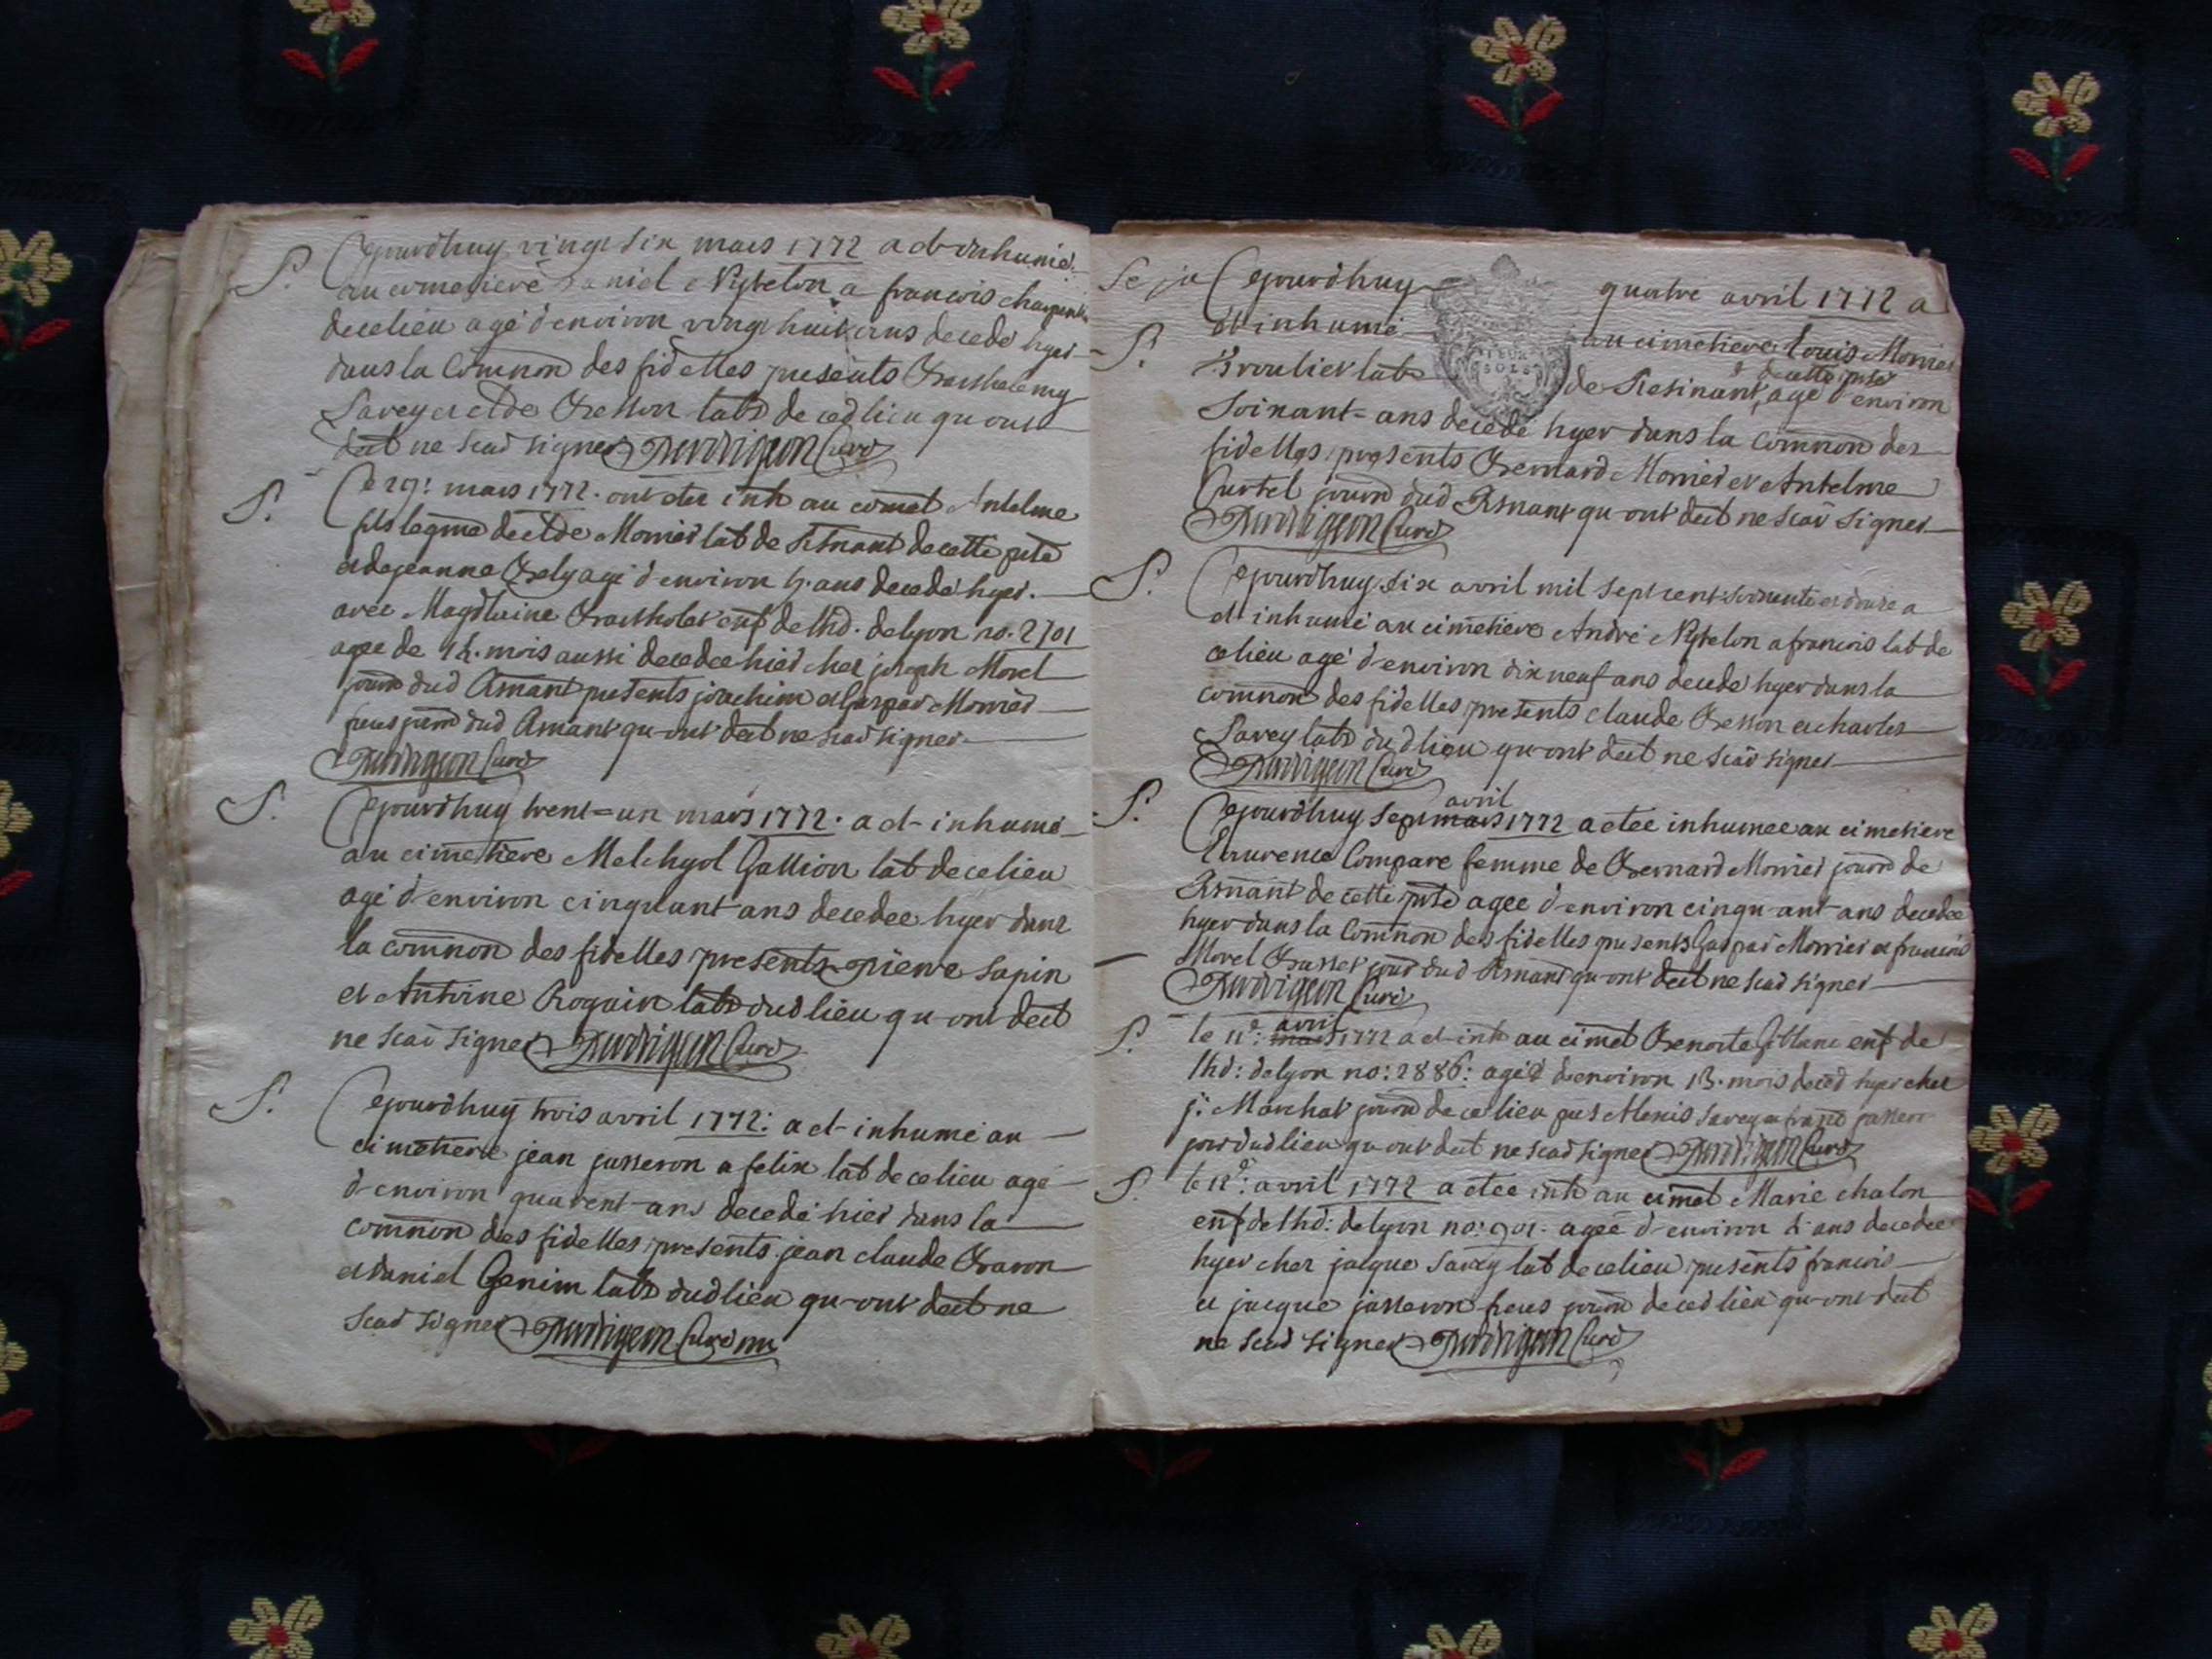 S. Cejourdhuy vingt six mars 1772 a et inhumé
au cimetiere Daniel Nybelon a francois charpentier
decelieu agé d'environ vingt huit ans decedé hyer
dans la Comnon des fidelles presents Barthelemy
Savey et Cl de Besson labrs de cedlieu qu ont
deét ne scav signer Curé
S. Ce 29: mars 1772. ont etez inh au cimet Antelme
fils legme decl de Monier lab de Resinant decette psse
et de jeanne Bely agé d'environ 4. ans decedé hyer.
avec Magdlaine Bartholet enf de lhd. delyon no. 2701
agee de 14. mois aussi decedee hier chez joseph Morel
journ dud Rsnant presents joachim et Gaspar Monier
freres journ dud Rsnant qu-ont deét ne scav signer
Curé
S. Cejourdhuy trent=un mars 1772. a et-inhumé
au cimetiere Melchyol Gallion lab decelieu
agé d'environ cinquant ans decedee hyer dans
la comnon des fidelles presents pierre Sapin
et Antoine Roquin labrs dud lieu qu-ont deét
ne scav signer Curé
S. Cejourdhuy trois avril 1772: a et-inhumé au
cimetiere jean jusseron a felix lab de celieu agé
d'environ quarent-ans decedé hier dans la
comnon des fidelles presents jean claude Baron
et daniel Genim labrs dudlieu qu-ont deét ne
scav signer Curé
Cejourdhuy quatre avril 1772 a
S. et inhumé au cimetiere louis Monier
Brouliet lab de Resinant, decette psse agé d'environ
Soixant=ans decedé hyer dans la comnon des
fidelles presents Bernard Monier et Antelme
Curtel journ dud Rsnant qu-ont deét ne scav signer
Curé
S. Cejourdhuy six avril mil sept cent soixante et douze a
et inhumé au cimetiere André Nybelon a francois lab de
celieu agé d'environ dix neuf ans decedé hyer dans la
comnon des fidelles presents claude Besson et charles
Savey labrs dud lieu qu-ont deét ne scav signer
Curé
S. Cejourdhuy sept mars avril 1772 a etee inhumee au cimetiere
laurence Compare femme de Bernard Monier journ de
Rsnant de cette psse agee d'environ cinqu-ant-ans decedee
hyer dans la Comnon des fidelles presents Gaspar Monier et francois
Morel Basset jour dud Rsnant qu-ont deét ne scav signer
Curé
S. le 11e: mars avril 1772 a et-inh au cimet Benoite Allanc enf de
lhd: delyon no: 2886: agéé d'environ 13. mois deced hyer chez
j: Marchat journ de ce lieu pres Alexis Savey et franc jusseron
jour dud lieu qu-ont deét ne scav signer Curé
S. le 12e: avril 1772 a etee inh au cimet Marie chalon
enf de lhd: delyon no: 901: ageé d'environ 4 ans decedee
hyer chez jacque Savey lab de celieu presents francois
et jacque jusseron freres journ de ced lieu qu-ont deét
ne scav signer Curé